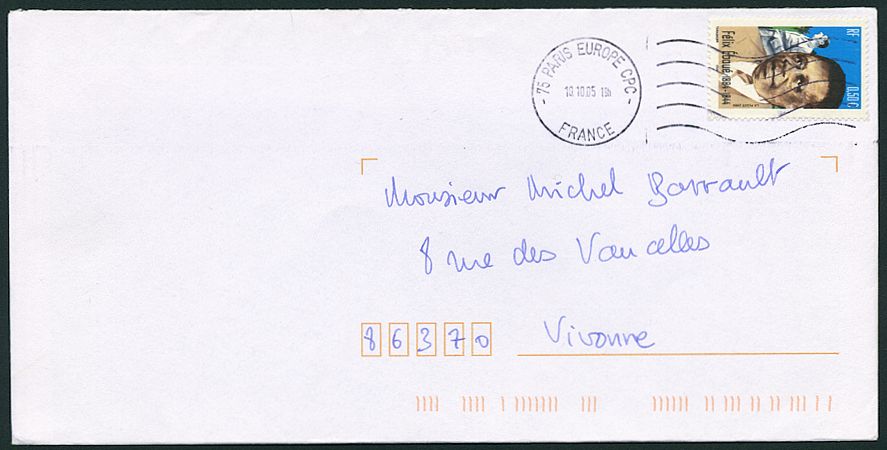 75 PARIS EUROPE CPC
13.10.05 19h
FRANCE
RF
0,50€
Félix Éboué 1884-1944
Monsieur Michel Barrault
8 rue des Vaucelles
86370 Vivonne